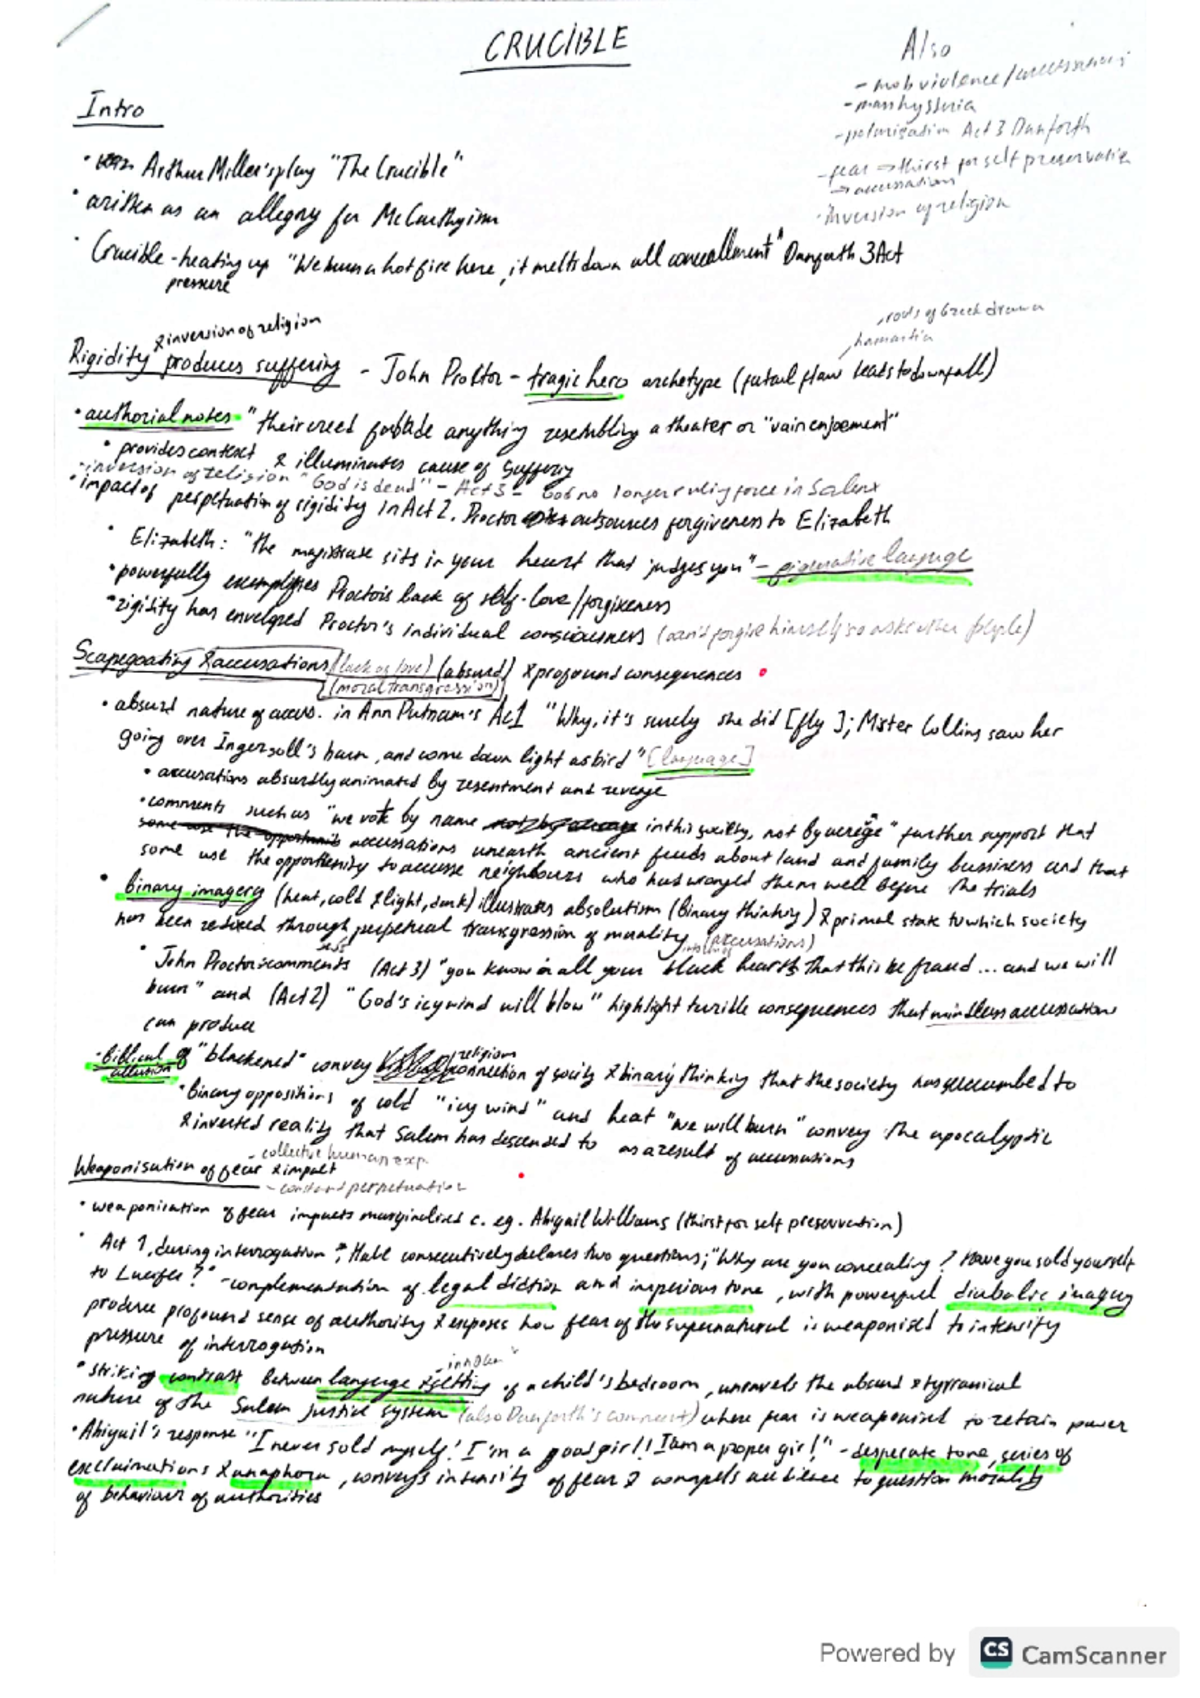 CRUCIBLE
Also
- mob violence/accusations
- mass hysteria
- polarisation Act 3 Danforth
- fear → thirst for self preservation
→ accusations
· Inversion of religion
Intro
· Arthur Miller's play "The Crucible"
· written as an allegory for McCarthyism
· Crucible - heating up "We burn a hot fire here, it melts down all concealment" Danforth 3 Act
pressure
& inversion of religion
, roots of Greek drama
hamartia
Rigidity produces suffering - John Proctor - tragic hero archetype (fatal flaw leads to downfall)
· authorial notes "their creed forbade anything resembling a theater or "vain enjoement"
· provides context & illuminates cause of suffering
- inversion of religion "God is dead" - Act 3 - God no longer ruling force in Salem
· impact of perpetuation of rigidity in Act 2. Proctor outsources forgiveness to Elizabeth
· Elizabeth: "the magistrate sits in your heart that judges you" - figurative language
· powerfully exemplifies Proctor's lack of self-love/forgiveness
· rigidity has enveloped Proctor's individual consciousness (can't forgive himself so asks other people)
Scapegoating & accusations (lack of love) (absurd) & profound consequences
(moral transgression)
· absurd nature of accus. in Ann Putnam's Act 1 "Why, it's surely she did [fly]; Mister Collins saw her
going over Ingersoll's barn, and come down light as bird" [language]
· accusations absurdly animated by resentment and revenge
· comments such as "we vote by name in this society, not by acreage" further support that
accusations unearth ancient feuds about land and family bussiness and that
some use the opportunity to accuse neighbours who has wronged them well before the trials
· binary imagery (heat, cold & light, dark) illustrates absolutism (binary thinking) & primal state to which society
has been reduced through perpetual transgression of morality (accusations)
· John Proctor's comments (Act 3) "you know in all your black hearts that this be fraud... and we will
burn" and (Act 2) "God's icy wind will blow" highlight terrible consequences that mindless accusations
can produce
· Biblical "blackened" convey connection of society & binary thinking that the society has succumbed to
allusion
religion
· binary oppositions of cold "icy wind" and heat "we will burn" convey the apocalyptic
& inverted reality that Salem has descended to as a result of accusations
- collective human exp.
Weaponisation of fear & impact
- constant perpetuation
· weaponisation of fear impacts marginalised c. eg. Abigail Williams (thirst for self preservation)
· Act 1, during interrogation, Hale consecutively declares two questions; "Why are you concealing? Have you sold yourself
to Lucifer?" - complementation of legal diction and imperious tone, with powerful diabolic imagery
produce profound sense of authority & exposes how fear of the supernatural is weaponised to intensify
pressure of interrogation
· striking contrast between language & setting of a child's bedroom, unravels the absurd & tyrannical
nature of the Salem justice system (also Danforth's comment) where fear is weaponised to retain power
· Abigail's response "I never sold myself! I'm a good girl! I am a proper girl!" - desperate tone, series of
exclaimations & anaphora, conveys intensity of fear & compels audience to question morality
of behaviour of authorities
Powered by CS CamScanner